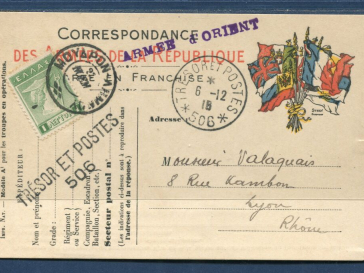 CORRESPONDANCE
ARMÉE D'ORIENT
DES ARMÉES DE LA RÉPUBLIQUE
FRANCHISE
TRESOR ET POSTES
6 - 12
16
* 506 *
Adresse
TRÉSOR ET POSTES
506
EXPÉDITEUR :
Nom et prénom
Grade :
Régiment
ou Service
Compagnie, Escadron,
Bataillon, Section, etc.
Secteur postal n°
(Les indications ci-dessus sont à reproduire dans
l'adresse de la réponse.)
Modèle A pour les troupes en opérations.
Monsieur Valaquais
8 Rue Kambon
Lyon
Rhône